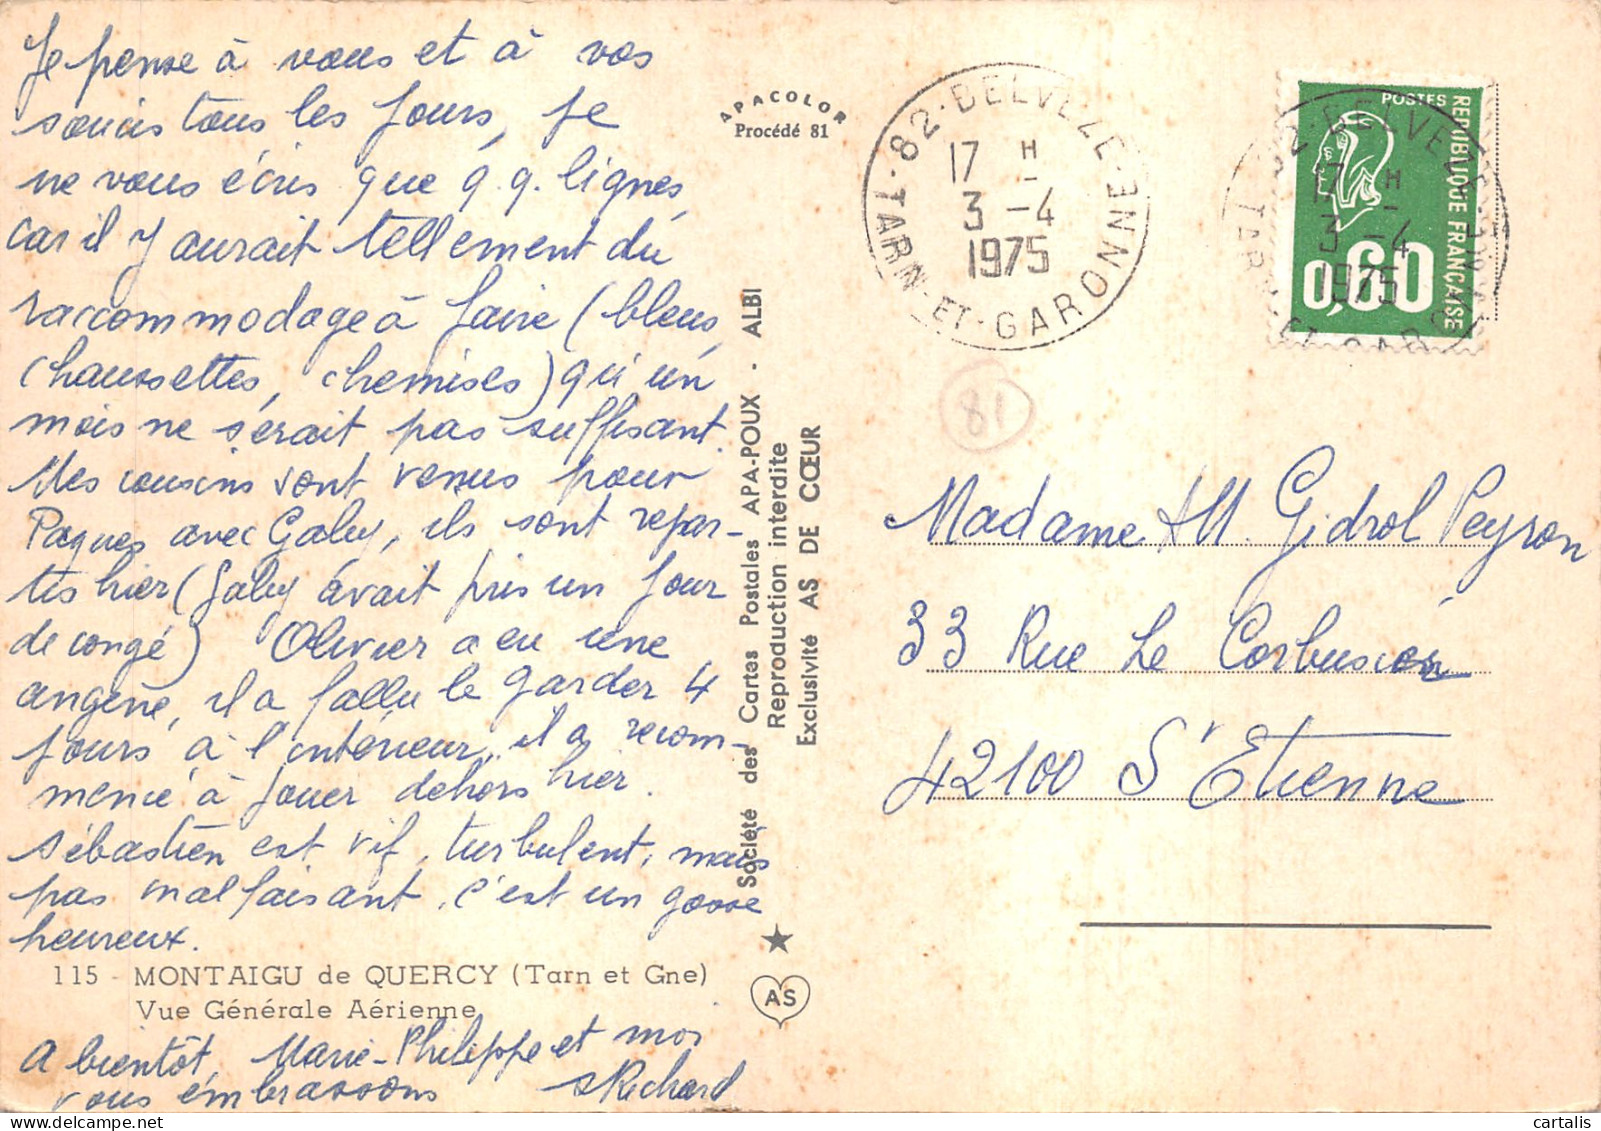 Je pense à vous et à vos
soucis tous les jours, je
ne vous écris que q.q. lignes
car il y aurait tellement du
raccommodage à faire (bleus,
chaussettes, chemises) qu'un
mois ne serait pas suffisant.
Mes cousins sont venus pour
Paques avec Gaby, ils sont repar-
tis hier (Gaby avait pris un jour
de congé) Olivier a eu une
angine, il a fallu le garder 4
jours à l'intérieur, il a recom-
mencé à jouer dehors hier.
Sébastien est vif, turbulent, mais
pas malfaisant, c'est un gosse
heureux.
115 - MONTAIGU de QUERCY (Tarn et Gne)
Vue Générale Aérienne
A bientôt, Marie-Philippe et moi
vous embrassons
Richard
APACOLOR
Procédé 81
Société des Cartes Postales APA-POUX - ALBI
Reproduction interdite
Exclusivité AS DE CŒUR
AS
82-BELVEZE-
17 H
3 -4
1975
TARN-ET-GARONNE
POSTES
REPUBLIQUE FRANÇAISE
0,60
82-BELVEZE-
17 H
3 -4
1975
TARN-ET-GARONNE
81
Madame M. Gidrol Peyron
33 Rue Le Corbusier
42100 St Etienne
cartalis